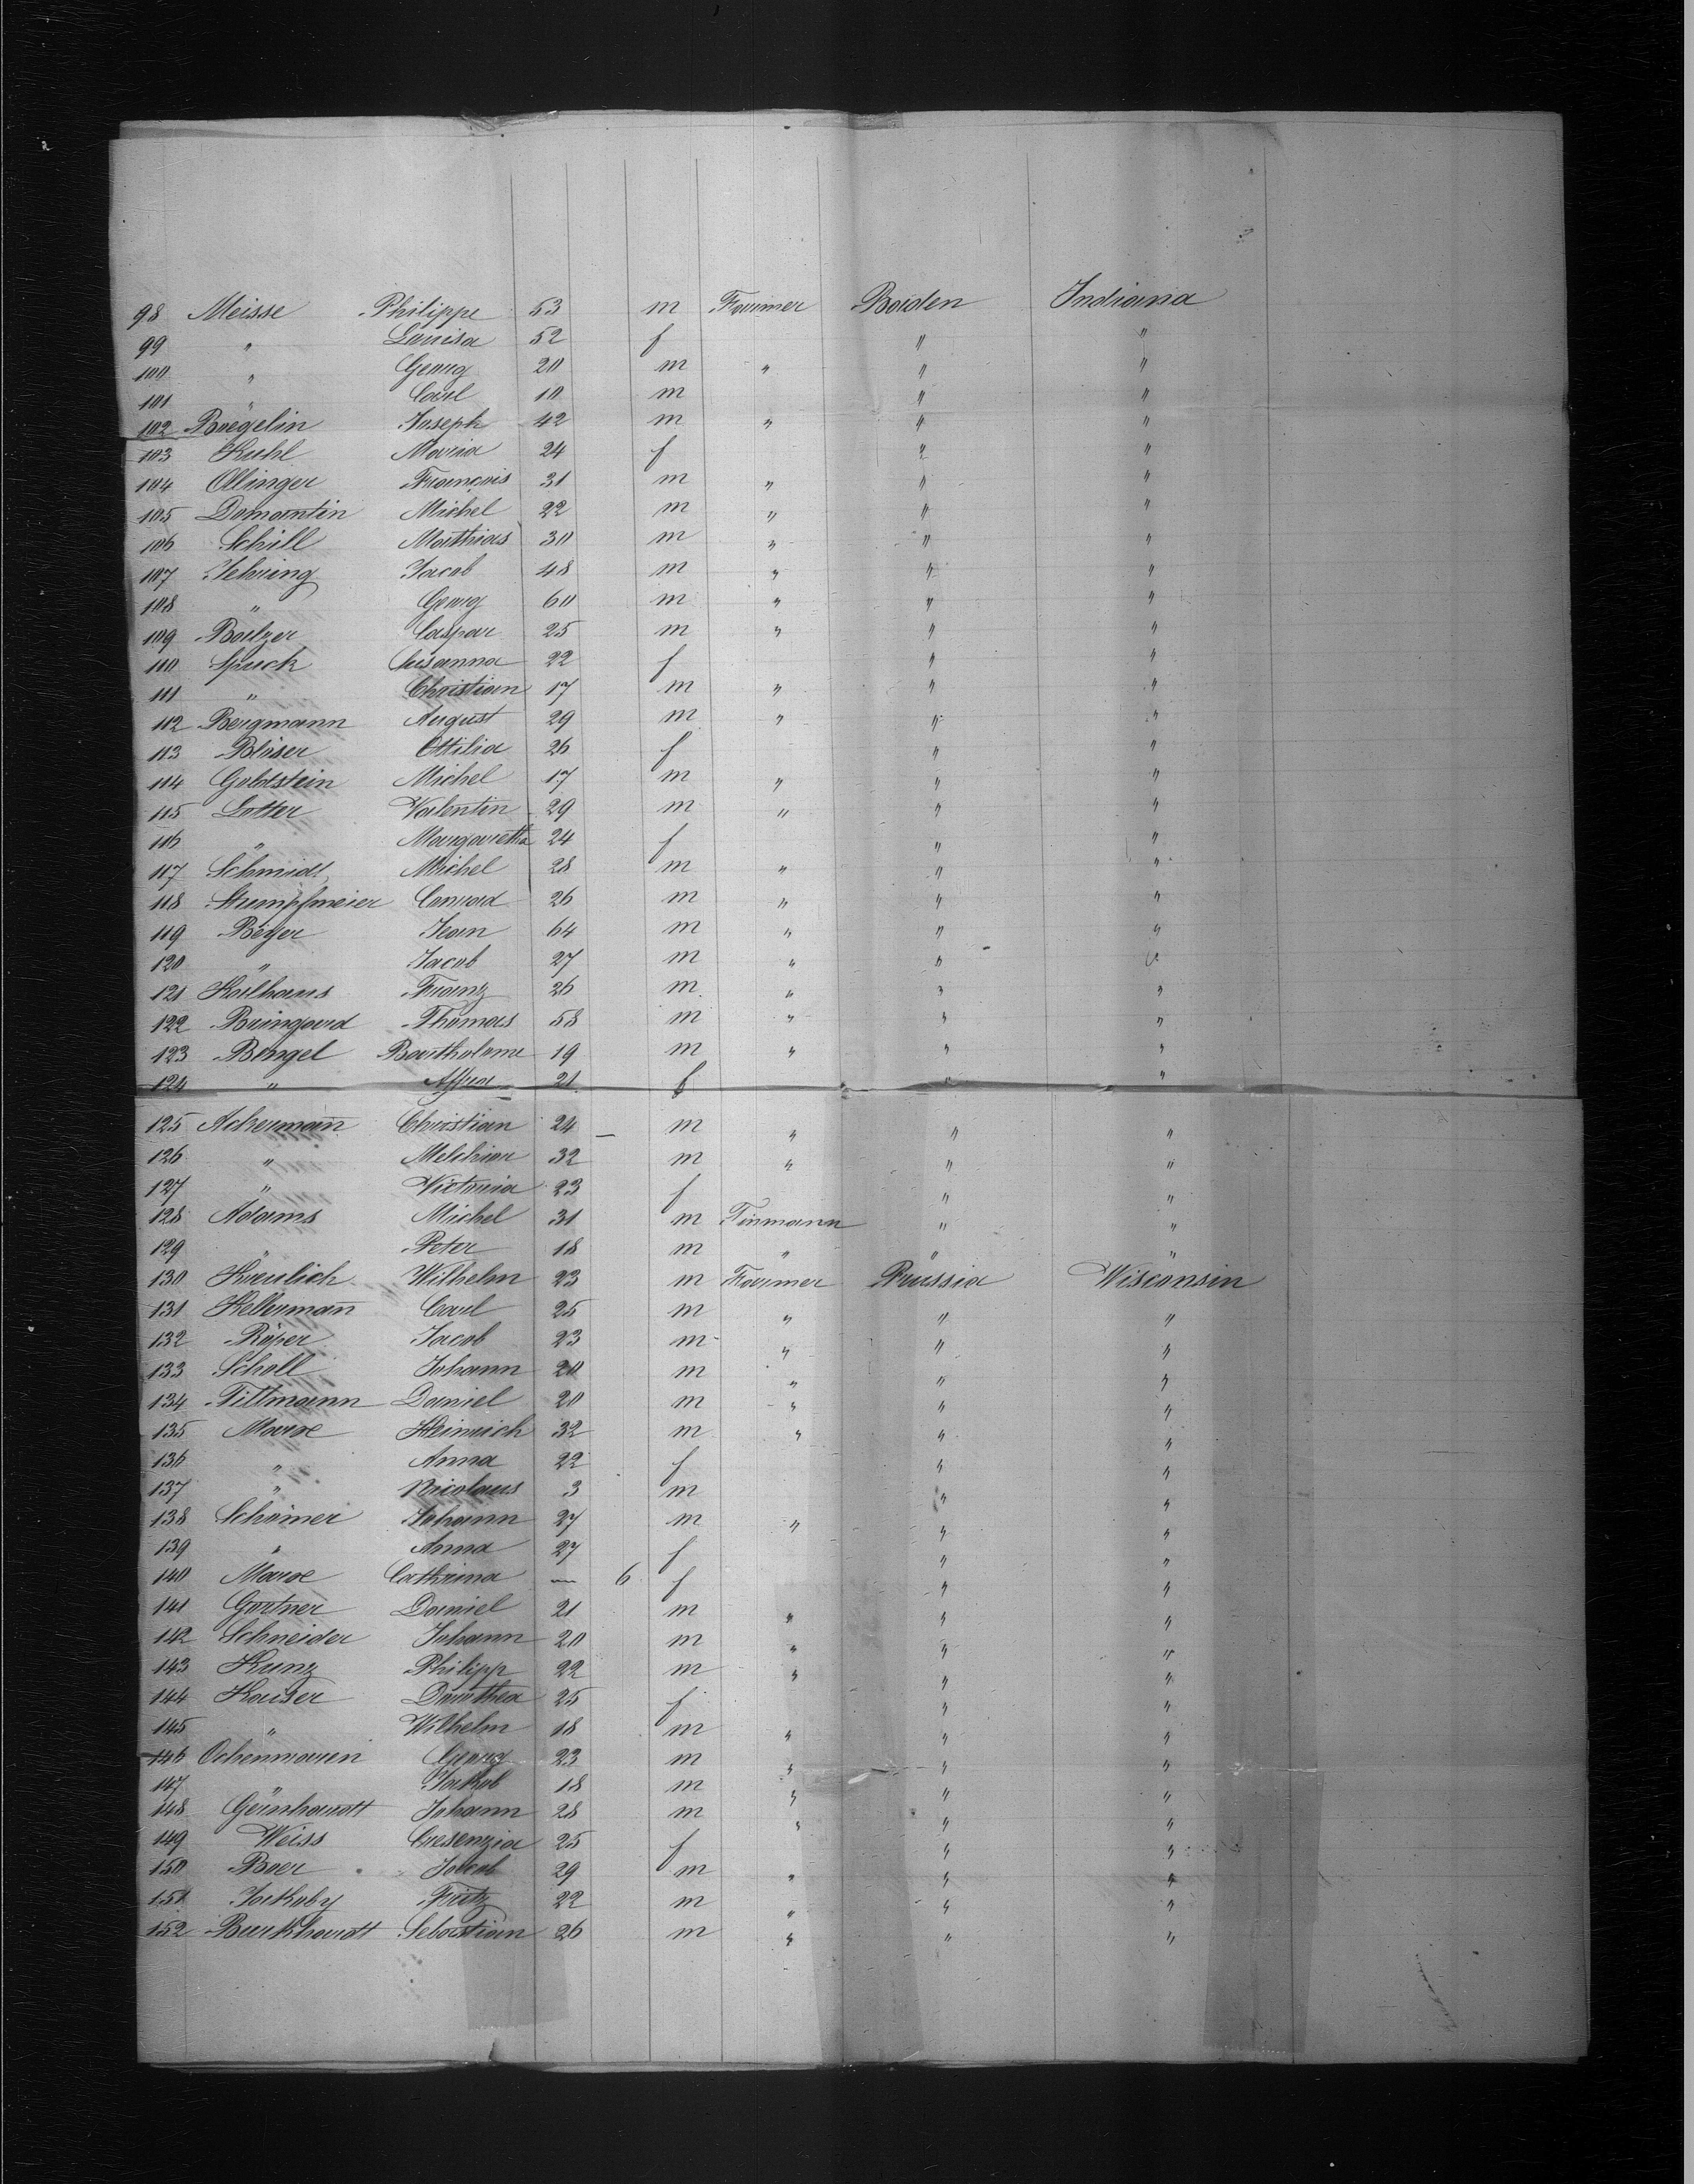 98 Meisse Philippe 53 m Farmer Baden Indiana
99 " Louisa 52 f " "
100 " Georg 20 m " " "
101 " Carl 10 m " "
102 Boegelin Joseph 42 m " " "
103 Kuhl Maria 24 f " "
104 Ollinger François 31 m " " "
105 Domantin Michel 22 m " " "
106 Schill Mathias 30 m " " "
107 Jehring Jacob 48 m " " "
108 " Georg 60 m " " "
109 Balzer Caspar 25 m " " "
110 Spuck Susanna 22 f " "
111 " Christian 17 m " " "
112 Bergmann August 29 m " " "
113 Bläser Ottilia 26 f " "
114 Goldstein Michel 17 m " " "
115 Lotter Valentin 29 m " " "
116 " Margaretha 24 f " "
117 Schmidt Michel 28 m " " "
118 Stumpfmeier Conrad 26 m " " "
119 Beyer Jean 64 m " " "
120 " Jacob 27 m " " "
121 Kailhaus Franz 26 m " " "
122 Bringard Thomas 58 m " " "
123 Bengel Bartholome 19 m " " "
124 " Affra 21 f " "
125 Ackermann Christian 24 — m " " "
126 " Melchior 32 m " " "
127 " Victoria 23 f " "
128 Adams Michel 31 m Tinmann " "
129 " Peter 18 m " " "
130 Kreulich Wilhelm 23 m Farmer Prussia Wisconsin
131 Kellermann Carl 25 m " " "
132 Röper Jacob 23 m " " "
133 Scholl Johann 20 m " " "
134 Tittmann Daniel 20 m " " "
135 Marx Heinrich 32 m " " "
136 " Anna 22 f " "
137 " Nicolaus 3 m " "
138 Schömer Johann 27 m " " "
139 " Anna 27 f " "
140 Marx Cathrina — 6 f " "
141 Gartner Daniel 21 m " " "
142 Schneider Johann 20 m " " "
143 Kunz Philipp 22 m " " "
144 Kaiser Dorothea 25 f " "
145 " Wilhelm 18 m " " "
146 Georg 23 m " " "
147 " Jakob 18 m " " "
148 Geinhardt Johann 28 m " " "
149 Weiss Cresenzia 25 f " "
150 Baer Jacob 29 m " " "
151 Jackoby Fritz 22 m " " "
152 Burkhardt Sebastian 26 m " " "